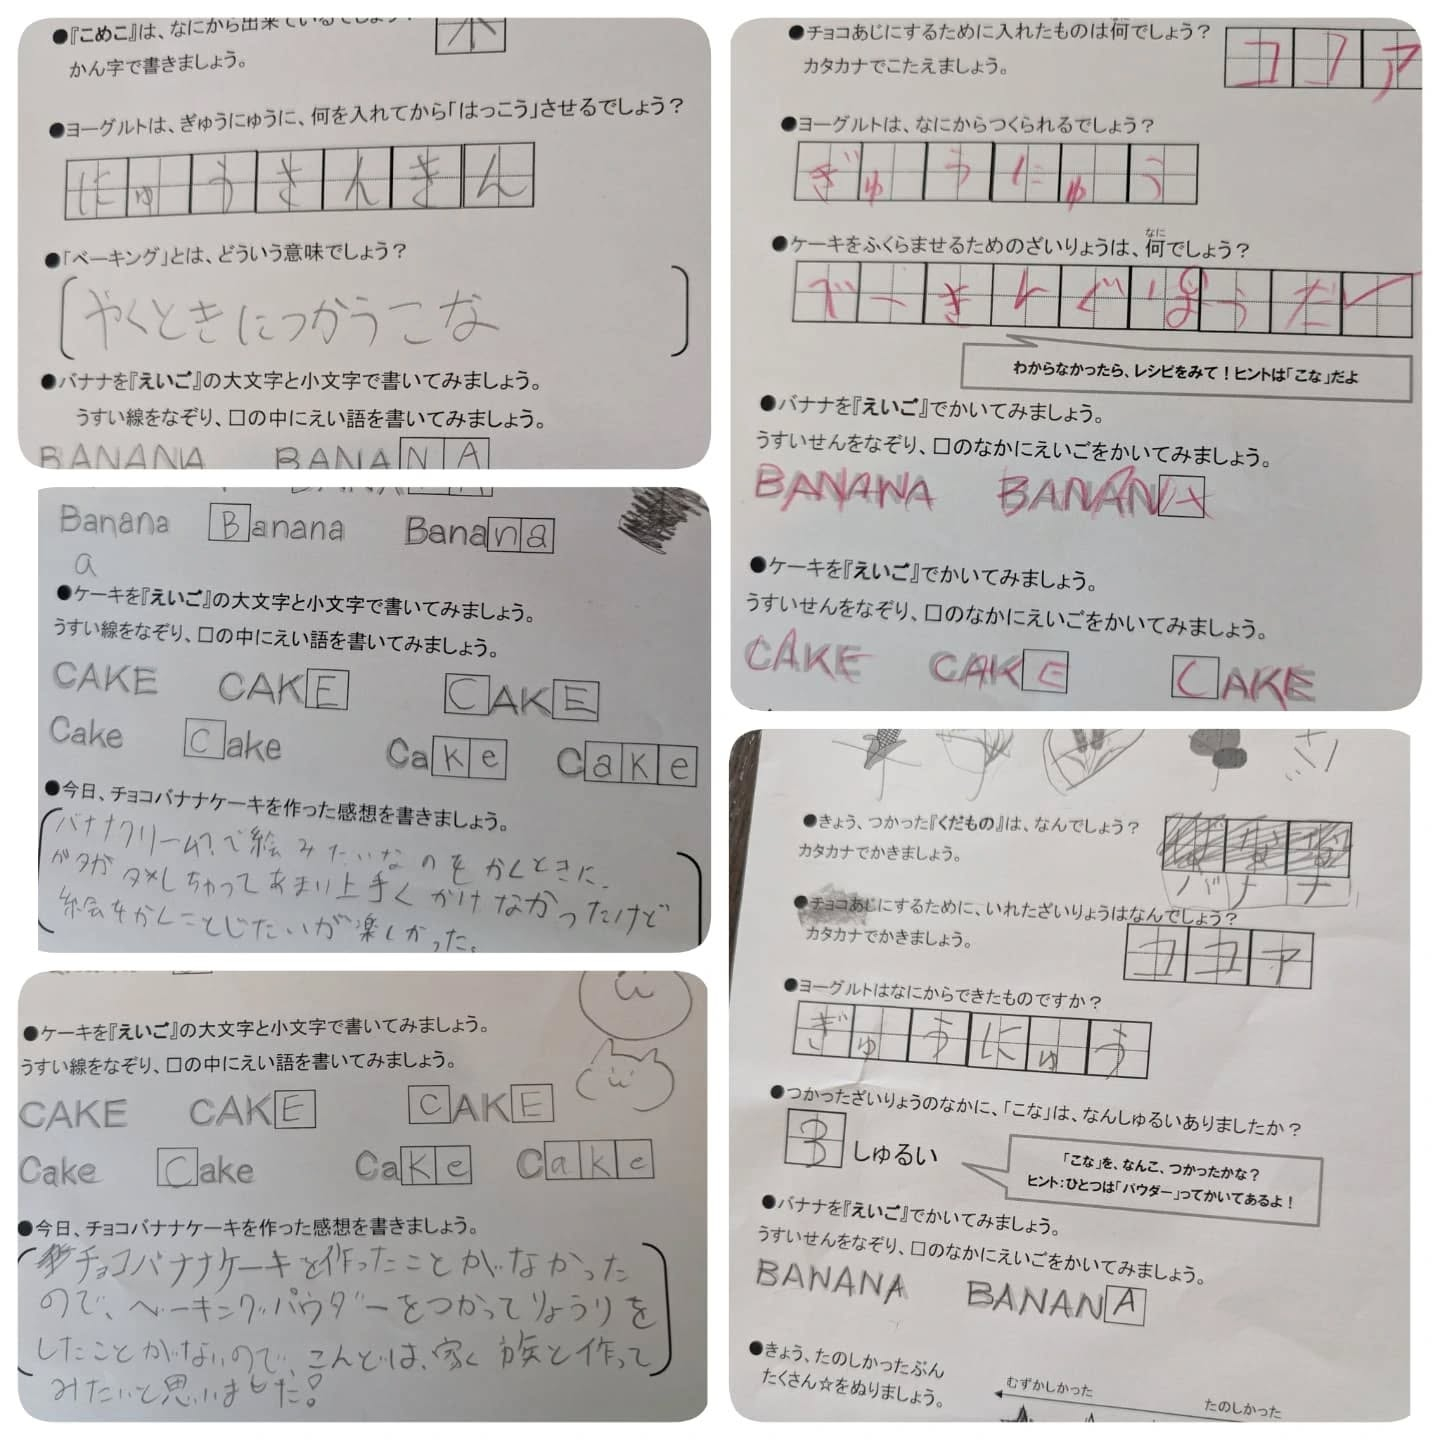 ●『こめこ』は、なにから出来ているでしょう?
かん字で書きましょう。
米
●ヨーグルトは、ぎゅうにゅうに、何を入れてから「はっこう」させるでしょう?
にゅうさんきん
●「ベーキング」とは、どういう意味でしょう?
やくときにつかうこな
●バナナを『えいご』の大文字と小文字で書いてみましょう。
うすい線をなぞり、□の中にえい語を書いてみましょう。
BANANA BANANA
Banana Banana Banana
a
●ケーキを『えいご』の大文字と小文字で書いてみましょう。
うすい線をなぞり、□の中にえい語を書いてみましょう。
CAKE CAKE CAKE
Cake Cake Cake Cake
●今日、チョコバナナケーキを作った感想を書きましょう。
バナナクリーム?で絵みたいなのをかくときに、
ガタガタメしちゃってあまり上手くかけなかったけど
絵をかくことじたいが楽しかった。
●ケーキを『えいご』の大文字と小文字で書いてみましょう。
うすい線をなぞり、□の中にえい語を書いてみましょう。
CAKE CAKE CAKE
Cake Cake Cake Cake
●今日、チョコバナナケーキを作った感想を書きましょう。
チョコバナナケーキを作ったことがなかった
ので、ベーキングパウダーをつかってりょうりを
したことがないので、こんどは、家く族と作って
みたいと思いました!
●チョコあじにするために入れたものは何でしょう?
なに
カタカナでこたえましょう。
ココア
●ヨーグルトは、なにからつくられるでしょう?
ぎゅうにゅう
なに
●ケーキをふくらませるためのざいりょうは、何でしょう?
べーきんぐぱうだー
わからなかったら、レシピをみて!ヒントは「こな」だよ
●バナナを『えいご』でかいてみましょう。
うすいせんをなぞり、□のなかにえいごをかいてみましょう。
BANANA BANANA
●ケーキを『えいご』でかいてみましょう。
うすいせんをなぞり、□のなかにえいごをかいてみましょう。
CAKE CAKE CAKE
●きょう、つかった『くだもの』は、なんでしょう?
カタカナでかきましょう。
バナナ
●チョコあじにするために、いれたざいりょうはなんでしょう?
カタカナでかきましょう。
ココア
●ヨーグルトはなにからできたものですか?
ぎゅうにゅう
●つかったざいりょうのなかに、「こな」は、なんしゅるいありましたか?
3しゅるい
「こな」を、なんこ、つかったかな?
ヒント:ひとつは「パウダー」ってかいてあるよ!
●バナナを『えいご』でかいてみましょう。
うすいせんをなぞり、□のなかにえいごをかいてみましょう。
BANANA BANANA
●きょう、たのしかったぶん
たくさん☆をぬりましょう。
むずかしかった たのしかった